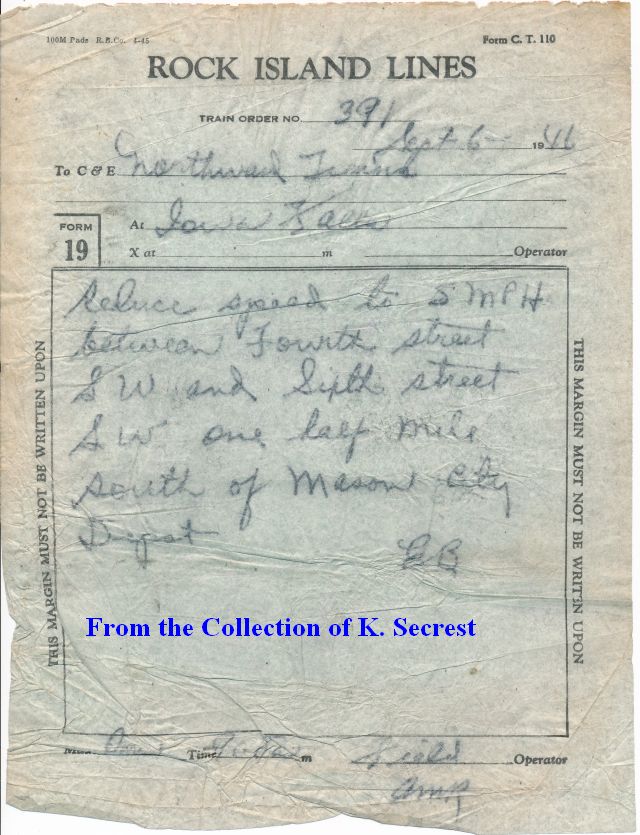 100M Pads R.B.Co. 4-45
Form C. T. 110
ROCK ISLAND LINES
TRAIN ORDER NO. 391
Sept 6 1946
To C & E Northward Trains
At Iowa Falls
FORM 19
X at m Operator
Reduce speed to 5 MPH
between Fourth street
S W and Sixth street
S W one half mile
south of Mason City
Depot
GB
THIS MARGIN MUST NOT BE WRITTEN UPON
THIS MARGIN MUST NOT BE WRITTEN UPON
From the Collection of K. Secrest
Made Com Time m Field Operator